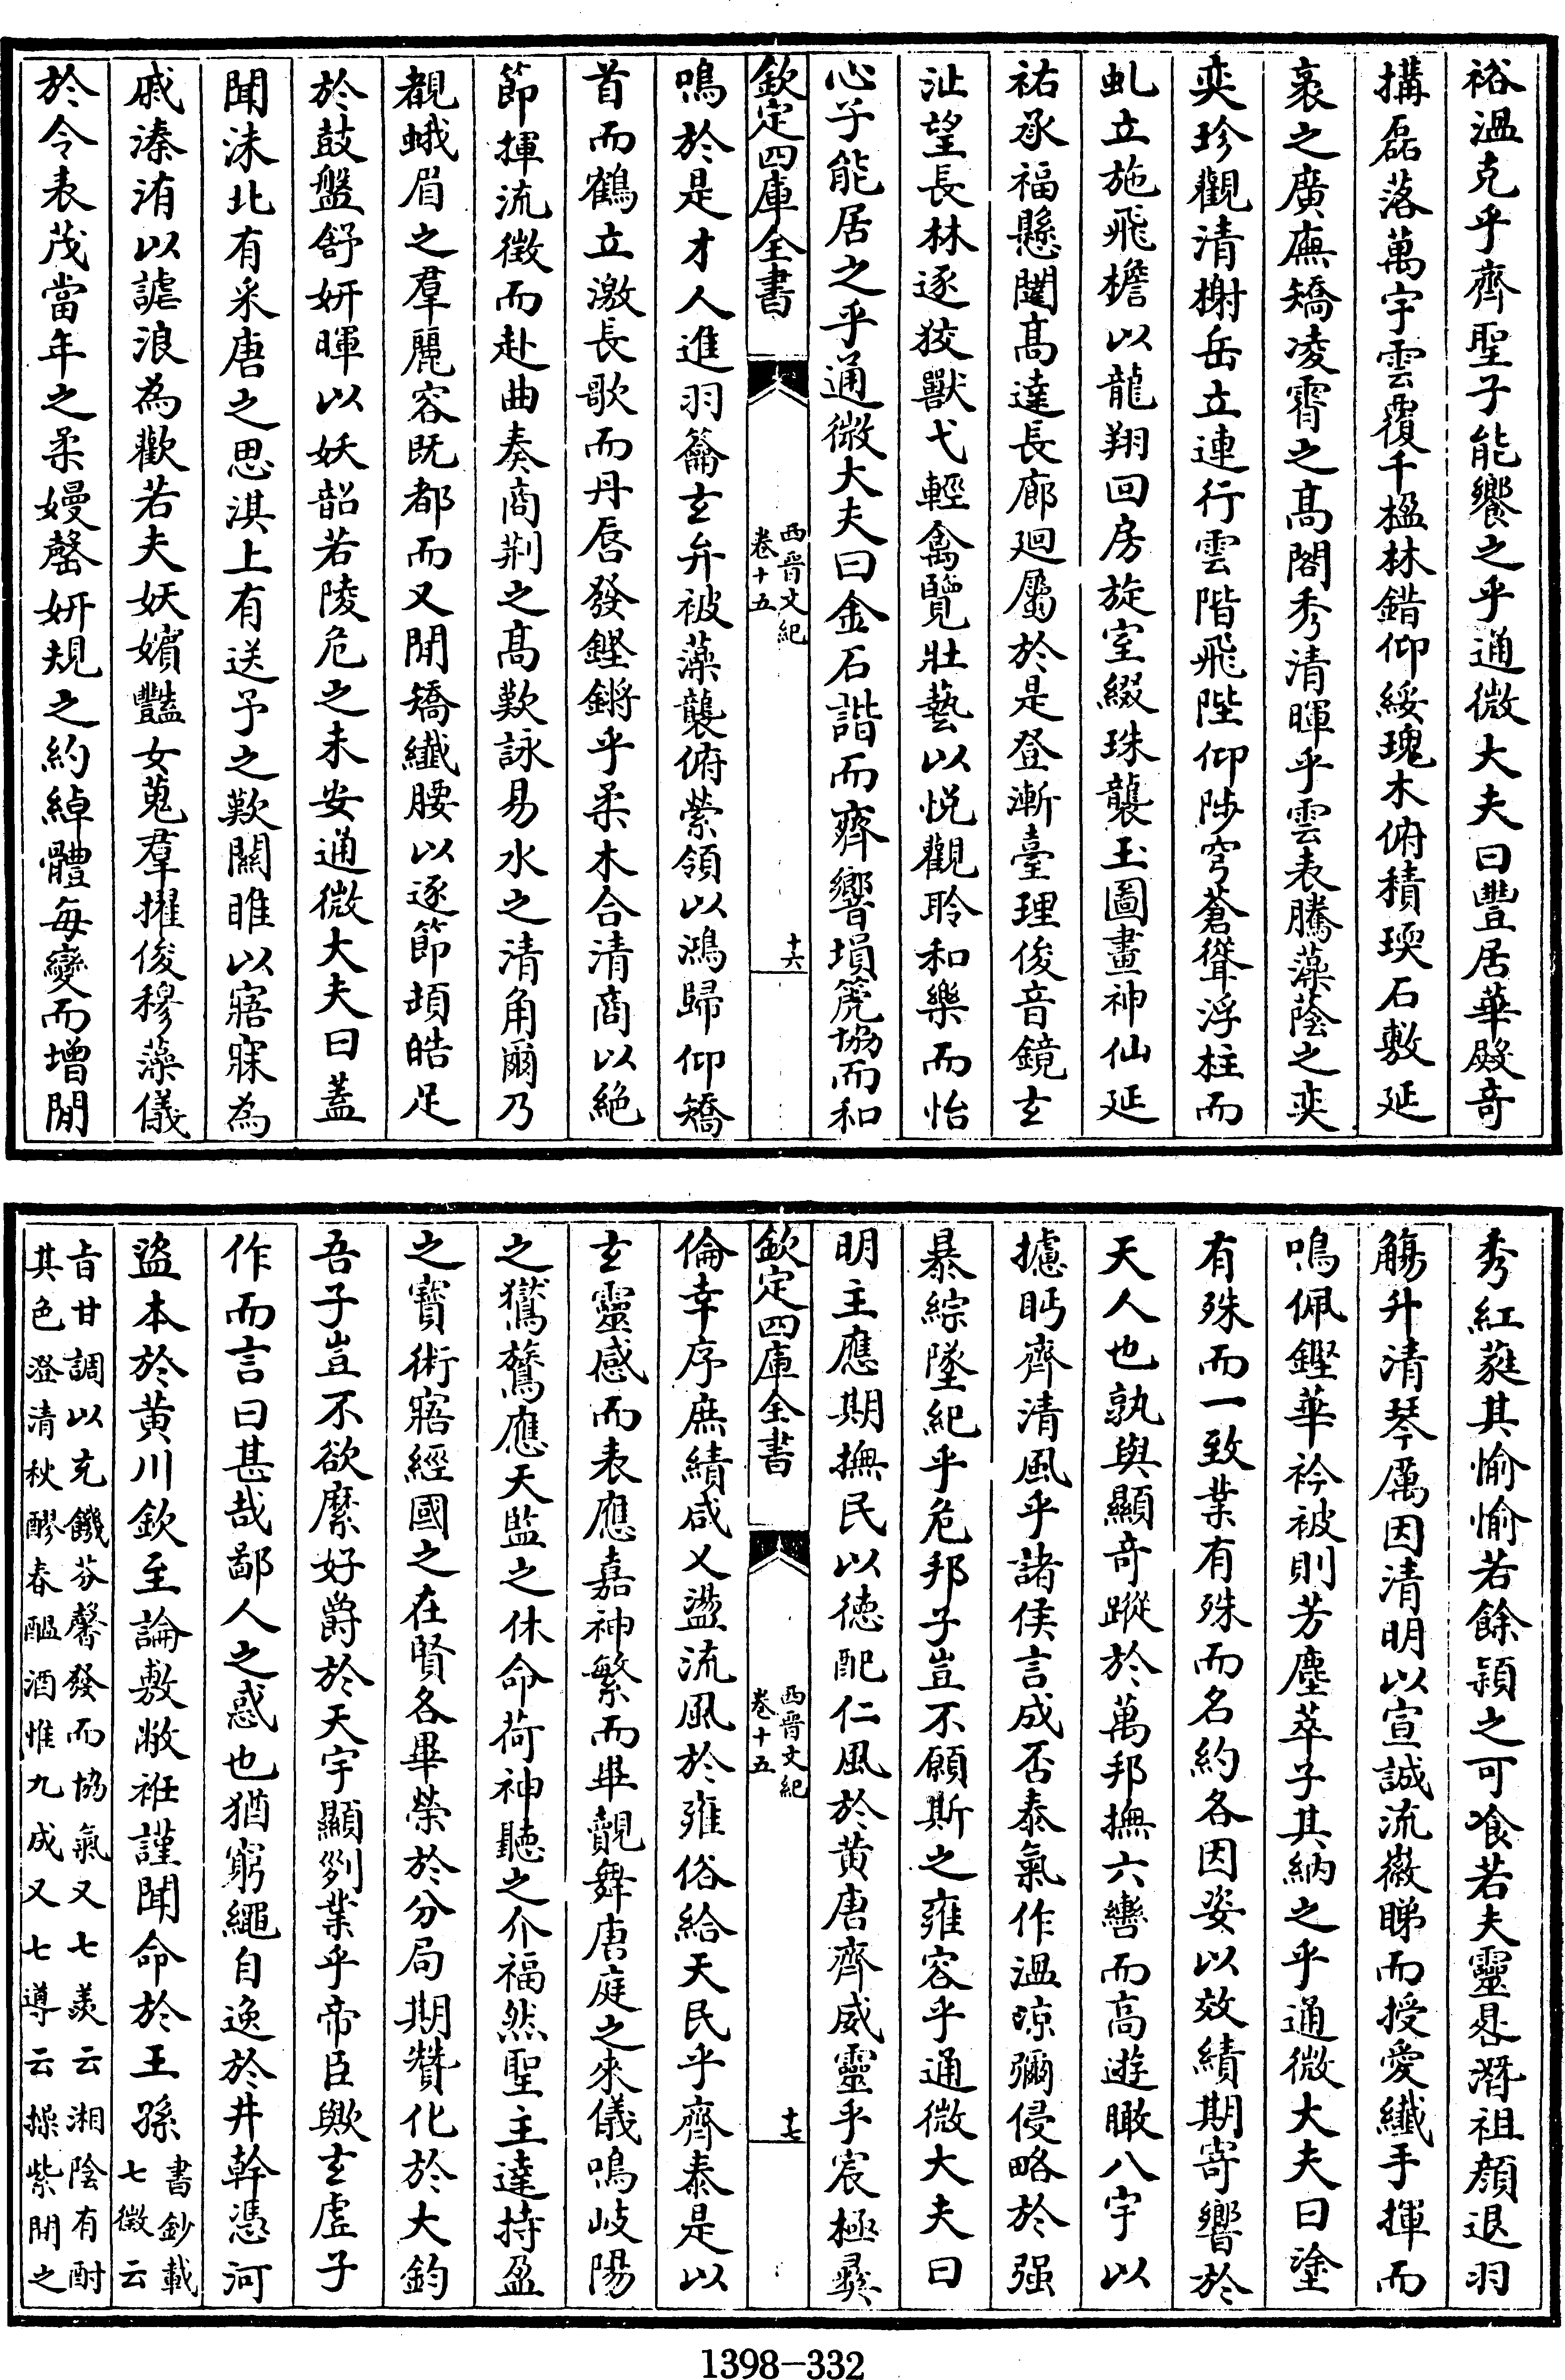 裕溫克乎齊聖子能饗之乎通微大夫曰豐居華殿奇
搆磊落萬宇雲覆千楹林錯仰綏瑰木俯積瑛石敷延
袤之廣廡矯凌霄之髙閣秀清暉乎雲表騰藻蔭之奕
奕珍觀清榭岳立連行雲階飛陛仰陟穹蒼聳浮柱而
虬立施飛檐以龍翔回房旋室綴珠襲玉圖畫神仙延
祐承福懸闥髙達長廊廻屬於是登漸臺理俊音鏡玄
沚望長林逐狡獸弋輕禽覽壯藝以悅觀聆和樂而怡
心子能居之乎通微大夫曰金石諧而齊響塤箎協而和
欽定四庫全書
西晉文紀
卷十五
十六
鳴於是才人進羽籥玄弁被藻襲俯縈領以鴻歸仰矯
首而鶴立激長歌而丹唇發鏗鏘乎柔木合清商以絶
節揮流徵而赴曲奏商荆之髙歎詠易水之清角爾乃
覩蛾眉之羣麗容既都而又閒矯纖腰以逐節頓皓足
於鼓盤舒妍暉以妖韶若陵危之未安通微大夫曰蓋
聞沬北有采唐之思淇上有送予之歎關雎以寤寐為
戚溱洧以謔浪為歡若夫妖嬪豔女蒐羣擢俊穆藻儀
於令表茂當年之柔嫚罄妍規之約綽體每變而增閒
秀紅蕤其愉愉若餘頴之可飡若夫靈晷潛祖顔退羽
觴升清琴厲因清明以宣誠流微睇而授愛纖手揮而
鳴佩鏗華衿被則芳塵萃子其納之乎通微大夫曰塗
有殊而一致業有殊而名約各因姿以效績期寄響於
天人也孰與顯奇蹤於萬邦撫六轡而高遊瞰八宇以
攄眄齊清風乎諸侯言成否泰氣作溫涼彌侵略於强
暴綜墜紀乎危邦子豈不願斯之雍容乎通微大夫曰
明主應期撫民以徳配仁風於黄唐齊威靈乎宸極彛
欽定四庫全書
西晉文紀
卷十五
十七
倫幸序庶績咸乂盪流風於雍俗給天民乎齊泰是以
玄靈感而表應嘉神繁而畢覿舞唐庭之來儀鳴岐陽
之鸑鷟應天監之休命荷神聽之介福然聖主達持盈
之寳術寤經國之在賢各畢榮於分局期贊化於大鈞
吾子豈不欲縻好爵於天宇顯列業乎帝臣歟玄虚子
作而言曰甚哉鄙人之惑也猶窮繩自逸於井幹憑河
盜本於黄川欽至論敷敝袵謹聞命於王孫書鈔載
七徵云
旨甘調以充饑芬馨發而協氣又七羨云湘陰有酎
其色澄清秋醪春醖酒惟九成又七導云操紫閒之
1398-332